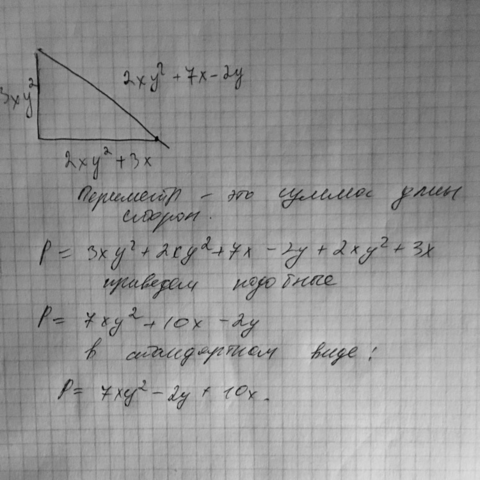 2xy² + 7x - 2y
3xy²
2xy² + 3x
Периметр - это сумма длин
сторон.
P = 3xy² + 2xy² + 7x - 2y + 2xy² + 3x
приведем подобные
P = 7xy² + 10x - 2y
в стандартном виде:
P = 7xy² - 2y + 10x.